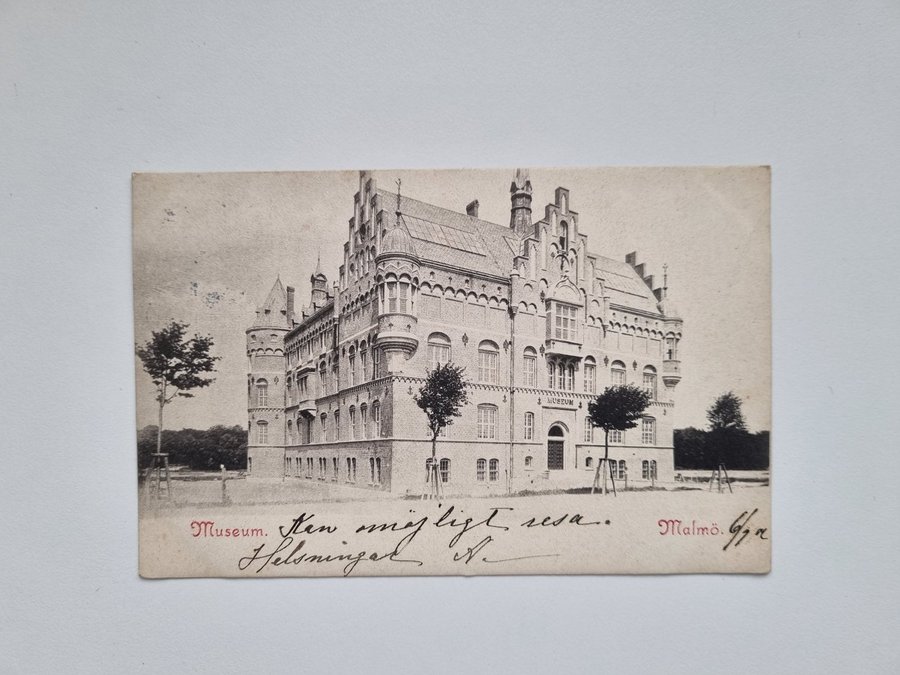 MUSEUM
Museum. Kan omöjligt resa. Malmö.
Helsningar A.